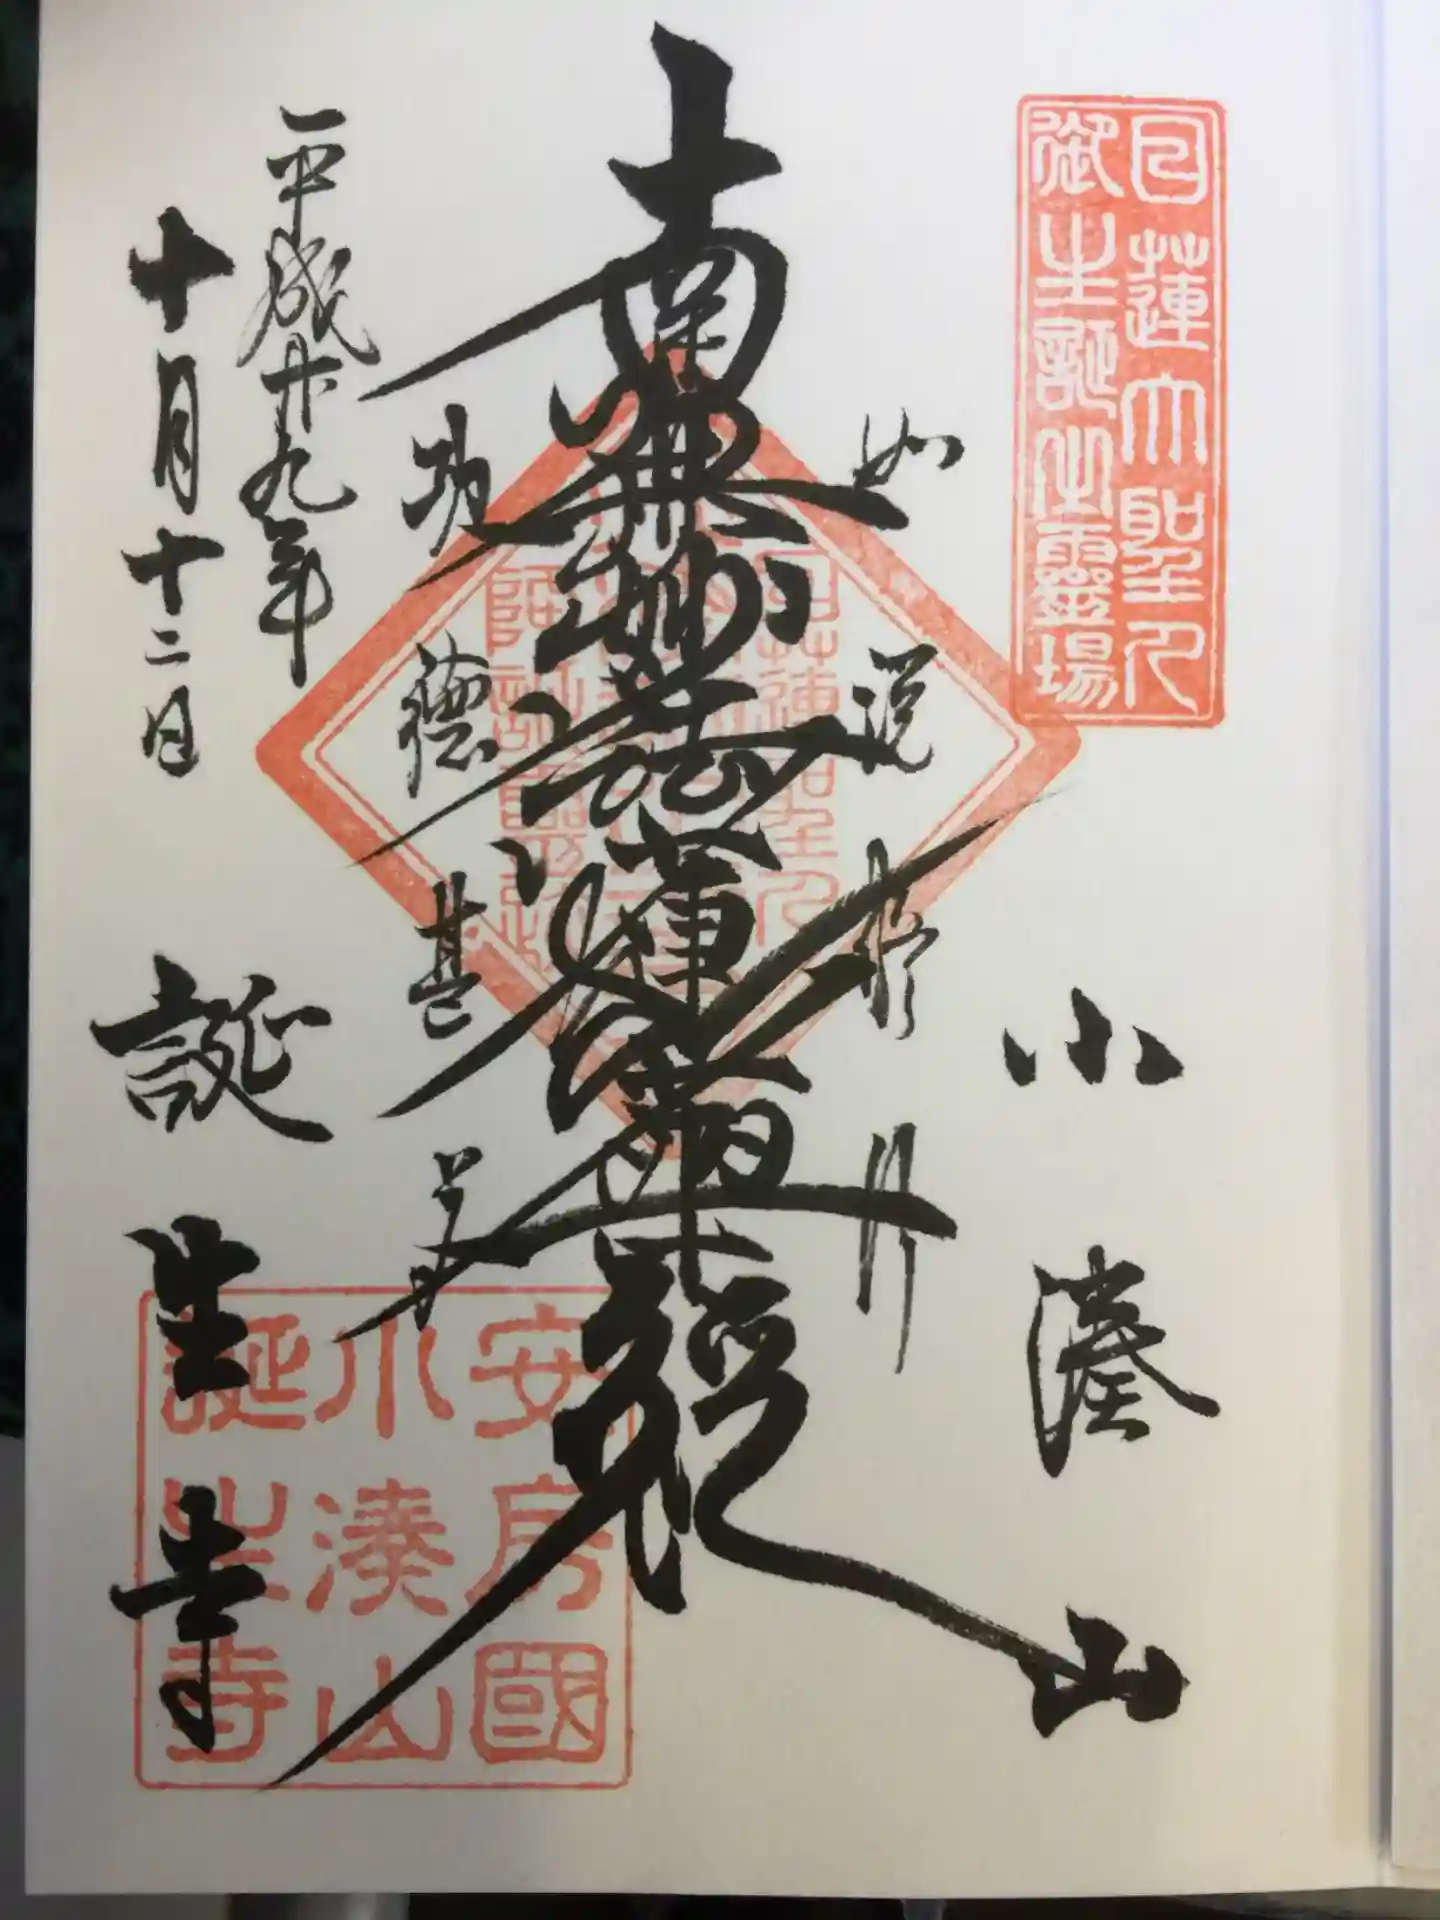 日蓮大聖人
御生誕之霊場
小湊山
如説修行
南無妙法蓮華経
功徳甚多
平成廿九年
十月十二日
誕生寺
日蓮大聖人
安房國
小湊山
誕生寺